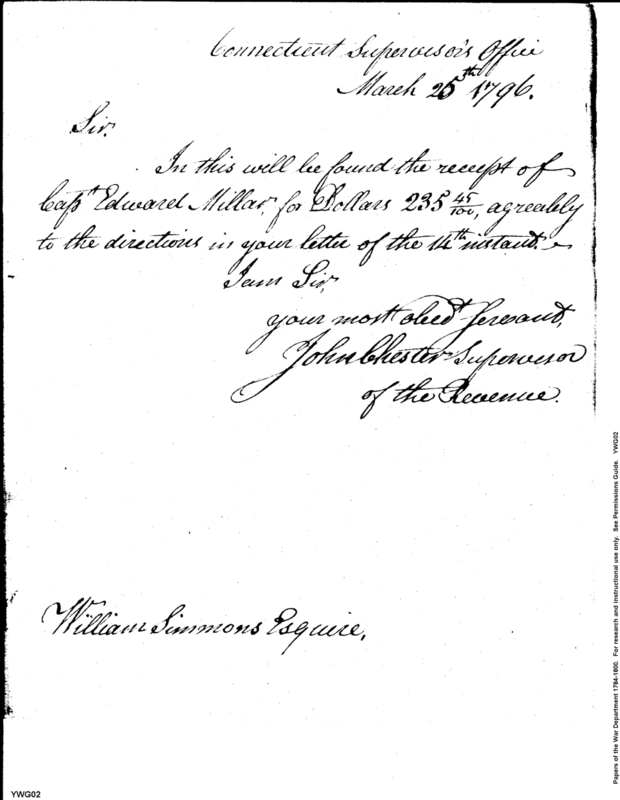 Connecticut Supervisor's Office
March 25th 1796.
Sir,
In this will be found the receipt of
Capt Edward Millar, for Dollars 235 45/100, agreably
to the directions in your letter of the 14th instant.
I am Sir,
your most obedt Servant,
John Chester Supervisor
of the Revenue.
William Simmons Esquire,
YWG02
Papers of the War Department 1784-1800. For research and instructional use only. See Permissions Guide. YWG02